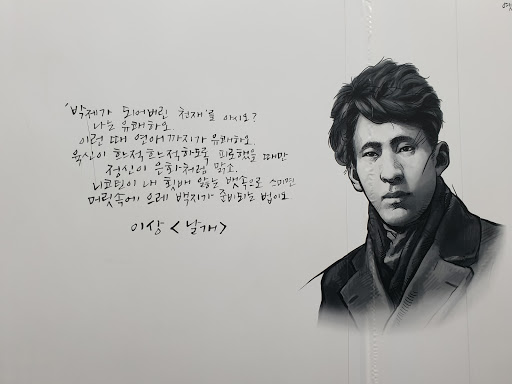 '박제가 되어버린 천재'를 아시오?
나는 유쾌하오.
이런 때 연애까지가 유쾌하오.
육신이 흐느적흐느적하도록 피로했을 때만
정신이 은화처럼 맑소.
니코틴이 내 횟배 앓는 뱃속으로 스미면
머릿속에 으레 백지가 준비되는 법이오
이상 <날개>